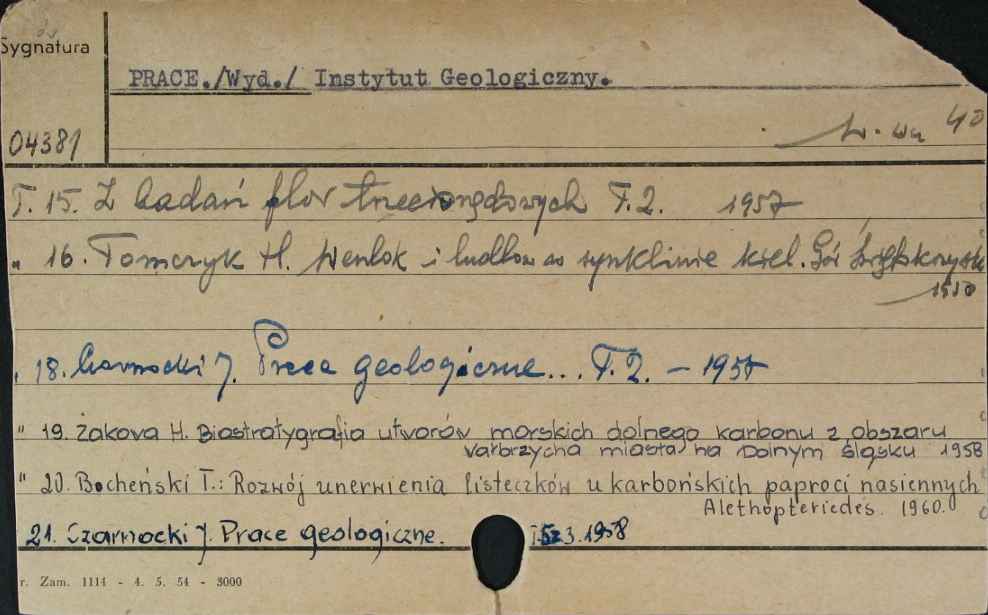 Sygnatura
PRACE./Wyd./ Instytut Geologiczny.
04381
W-wa 40
T. 15. Z badań flor trzeciorzędowych T.2. 1957
" 16. Tomczyk H. Wenlok i ludlow w synklinie kiel. Gór Świętokrzysk.
18. Czarnocki J. Prace geologiczne... T.2. - 1957
" 19. Żakowa H. Biostratygrafia utworów morskich dolnego karbonu z obszaru
Wałbrzycha miasta na Dolnym Śląsku 1958
" 20. Bocheński T.: Rozwój unerwienia listeczków u karbońskich paproci nasiennych
Alethopterides. 1960.
21. Czarnocki J. Prace geologiczne. T.5 z 3. 1958
r. Zam. 1114 - 4. 5. 54 - 3000